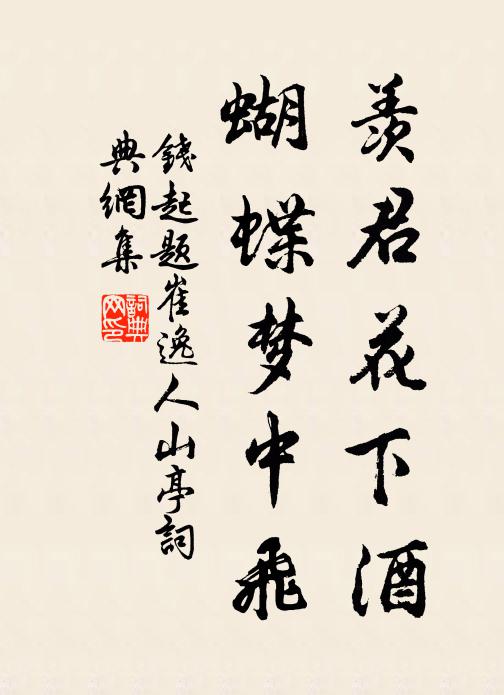 羡君花下酒
蝴蝶梦中飛
錢起题崔逸人山亭詞
典網集
詞典
网印